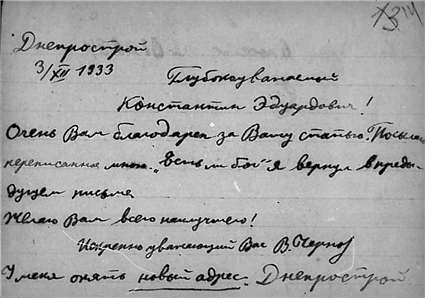 Днепрострой
3/XII 1933
Глубокоуважаемый
Константин Эдуардович!
Очень Вам благодарен за Вашу статью. Посылаю
переписанное мною. „Есть ли бог" я вернул в преды-
дущем письме
Желаю Вам всего наилучшего!
Искренно уважающий Вас В. Чернов
У меня опять новый адрес. Днепрострой